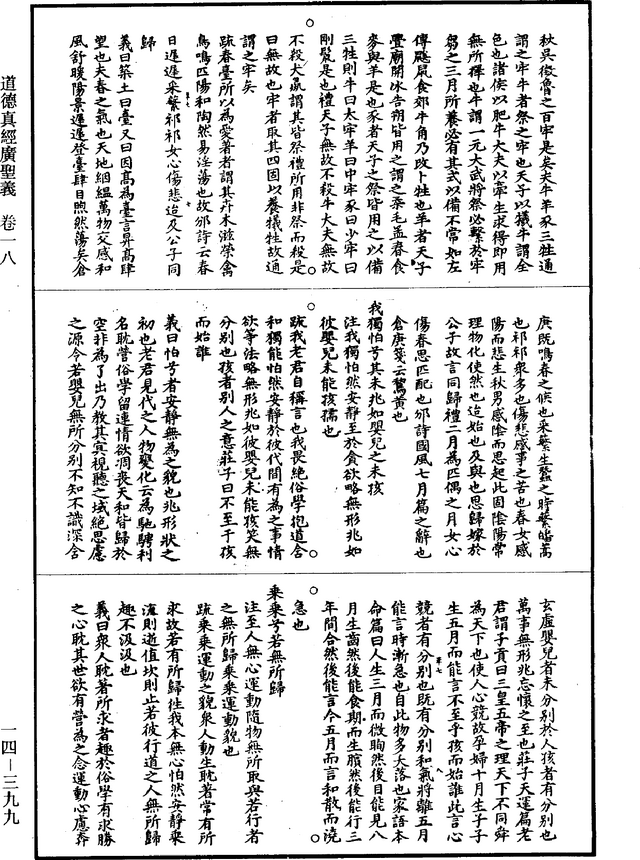 道德真經廣聖義 卷一八
一四—三九九
秋吳徵魯之百牢是矣夫牛羊豕三牲通
謂之牢牛者祭之牢也天子以犧牛謂全
色也諸侯以肥牛大夫以牽牛求得即用
無所擇也牛謂一元大武將祭必繫於牢
芻之三月所養必有其式以備不常如左
傳鼷鼠食郊牛角乃改卜牲也羊者天子
豐廟開冰告朔皆用之謂之柔毛孟春食
麥與羊是也豕者天子之祭皆用之以備
三牲則牛曰太牢羊曰中牢豕曰少牢曰
剛鬣是也禮天子無故不殺牛大夫無故
不殺犬羸謂其皆祭禮所用非祭而殺是
曰無故也牢者取其四固以養犧牲故通
謂之牢矣
疏春臺所以為愛著者謂其卉木滋榮禽
鳥鳴匹陽和陶然易淫蕩也故邠詩云春
日遲遲采蘩祁祁女心傷悲迨及公子同
歸
義曰築土曰臺又曰因高為臺言昇高肆
望也夫春之氣也天地絪縕萬物交感和
風舒暖陽景遲遲登臺肆目煦然蕩矣倉
庚既鳴春之候也采蘩生蠶之時蘩皤蒿
也祁祁衆多也傷悲感事之苦也春女感
陽而悲生秋男感陰而思起此固陰陽常
理物化使然也迨始也及與也思歸嫁於
公子故言同歸禮二月為匹偶之月女心
傷春思匹配也邠詩國風七月篇之辭也
倉庚箋云鸎黃也
我獨怕兮其未兆如嬰兒之未孩
注我獨怕然安靜至於貪欲略無形兆如
彼嬰兒未能孩孺也
疏我老君自稱言也我畏絕俗學抱道含
和獨能怕然安靜於彼代間有為之事情
欲等法略無形兆如彼嬰兒未能孩笑無
分別也孩者別人之意莊子曰不至于孩
而始誰
義曰怕兮者安靜無為之貌也兆形狀之
初也老君見代之人物變化云為馳騁利
名耽營俗學留連情欲凋喪天和皆歸於
空非為了出乃教其冥視聽之域絕思慮
之源令若嬰兒無所分別不知不識深含
玄虛嬰兒者未分別於人孩者有分別也
萬事無形兆忘懷之至也莊子天運篇老
君謂子貢曰三皇五帝之理天下不同舜
為天下也使人心競故孕婦十月生子子
生五月而能言不至乎孩而始誰此言心
競者有分別也既有分別和氣將離五月
能言時漸急也自此物多夭落也家語本
命篇曰人生三月而微眴然後目能見八
月生齒然後能食朞而生臏然後能行三
年𦣞合然後能言今五月而言和散而澆
急也
乘乘兮若無所歸
注至人無心運動隨物無所取與若行者
之無所歸乘乘運動貌也
疏乘乘運動之貌衆人動生耽著常有所
求故若有所歸往我本無心怕然安靜乘
流則逝值坎則止若彼行道之人無所歸
趣不汲汲也
義曰衆人耽著所求者趣於俗學有求勝
之心耽其世欲有營為之念運動心慮莽